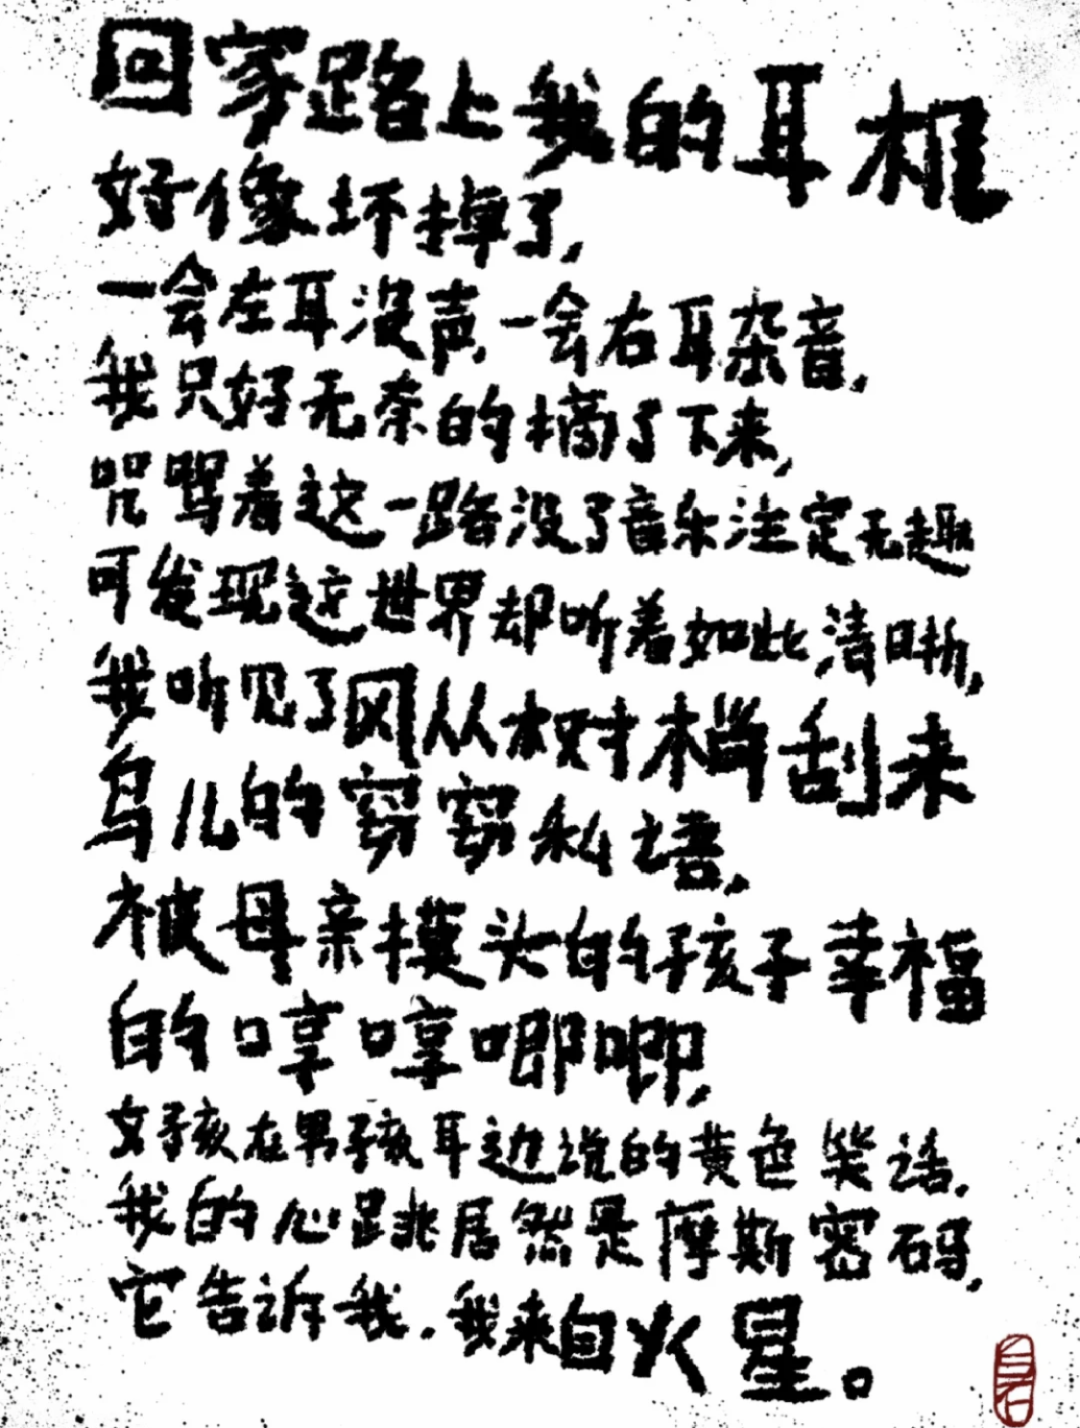 回家路上我的耳机
好像坏掉了,
一会左耳没声,一会右耳杂音,
我只好无奈的摘了下来,
咒骂着这一路没了音乐注定无趣
可发现这世界却听着如此清晰,
我听见了风从树梢刮来
鸟儿的窃窃私语,
被母亲摸头的孩子幸福
的哼哼唧唧,
女孩在男孩耳边说的黄色笑话.
我的心跳居然是摩斯密码,
它告诉我.我来自火星。